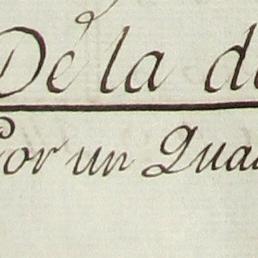 De la d
Por un Qua